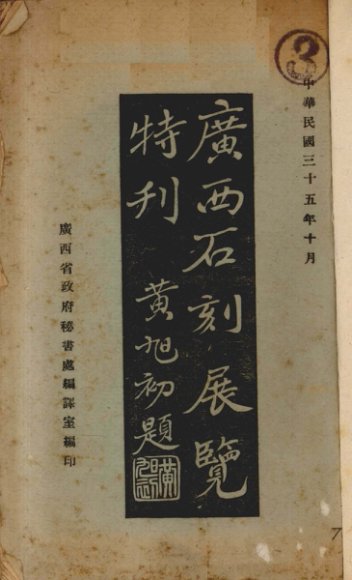 中華民國三十五年十月
廣西石刻展覽
特刊
黃旭初題
廣西省政府秘書處編譯室編印
3
7